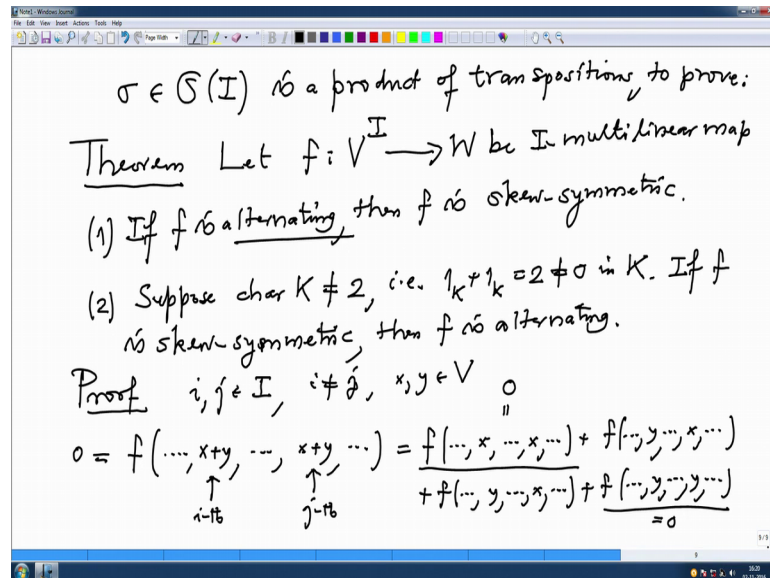 Note1 - Windows Journal
File Edit View Insert Actions Tools Help
Page Width
B
σ ∈ 𝔖(I) is a product of transpositions, to prove:
Theorem Let f: V^I → W be I-multilinear map
(1) If f is alternating, then f is skew-symmetric.
(2) Suppose char K ≠ 2, i.e. 1_K + 1_K = 2 ≠ 0 in K. If f
is skew-symmetric, then f is alternating.
Proof i, j ∈ I, i ≠ j, x, y ∈ V
0
||
0 = f(…, x+y, …, x+y, …) = f(…, x, …, x, …) + f(…, y, …, x, …)
↑ ↑ + f(…, y, …, x, …) + f(…, y, …, y, …)
i-th j-th = 0
9/9
9
16:20